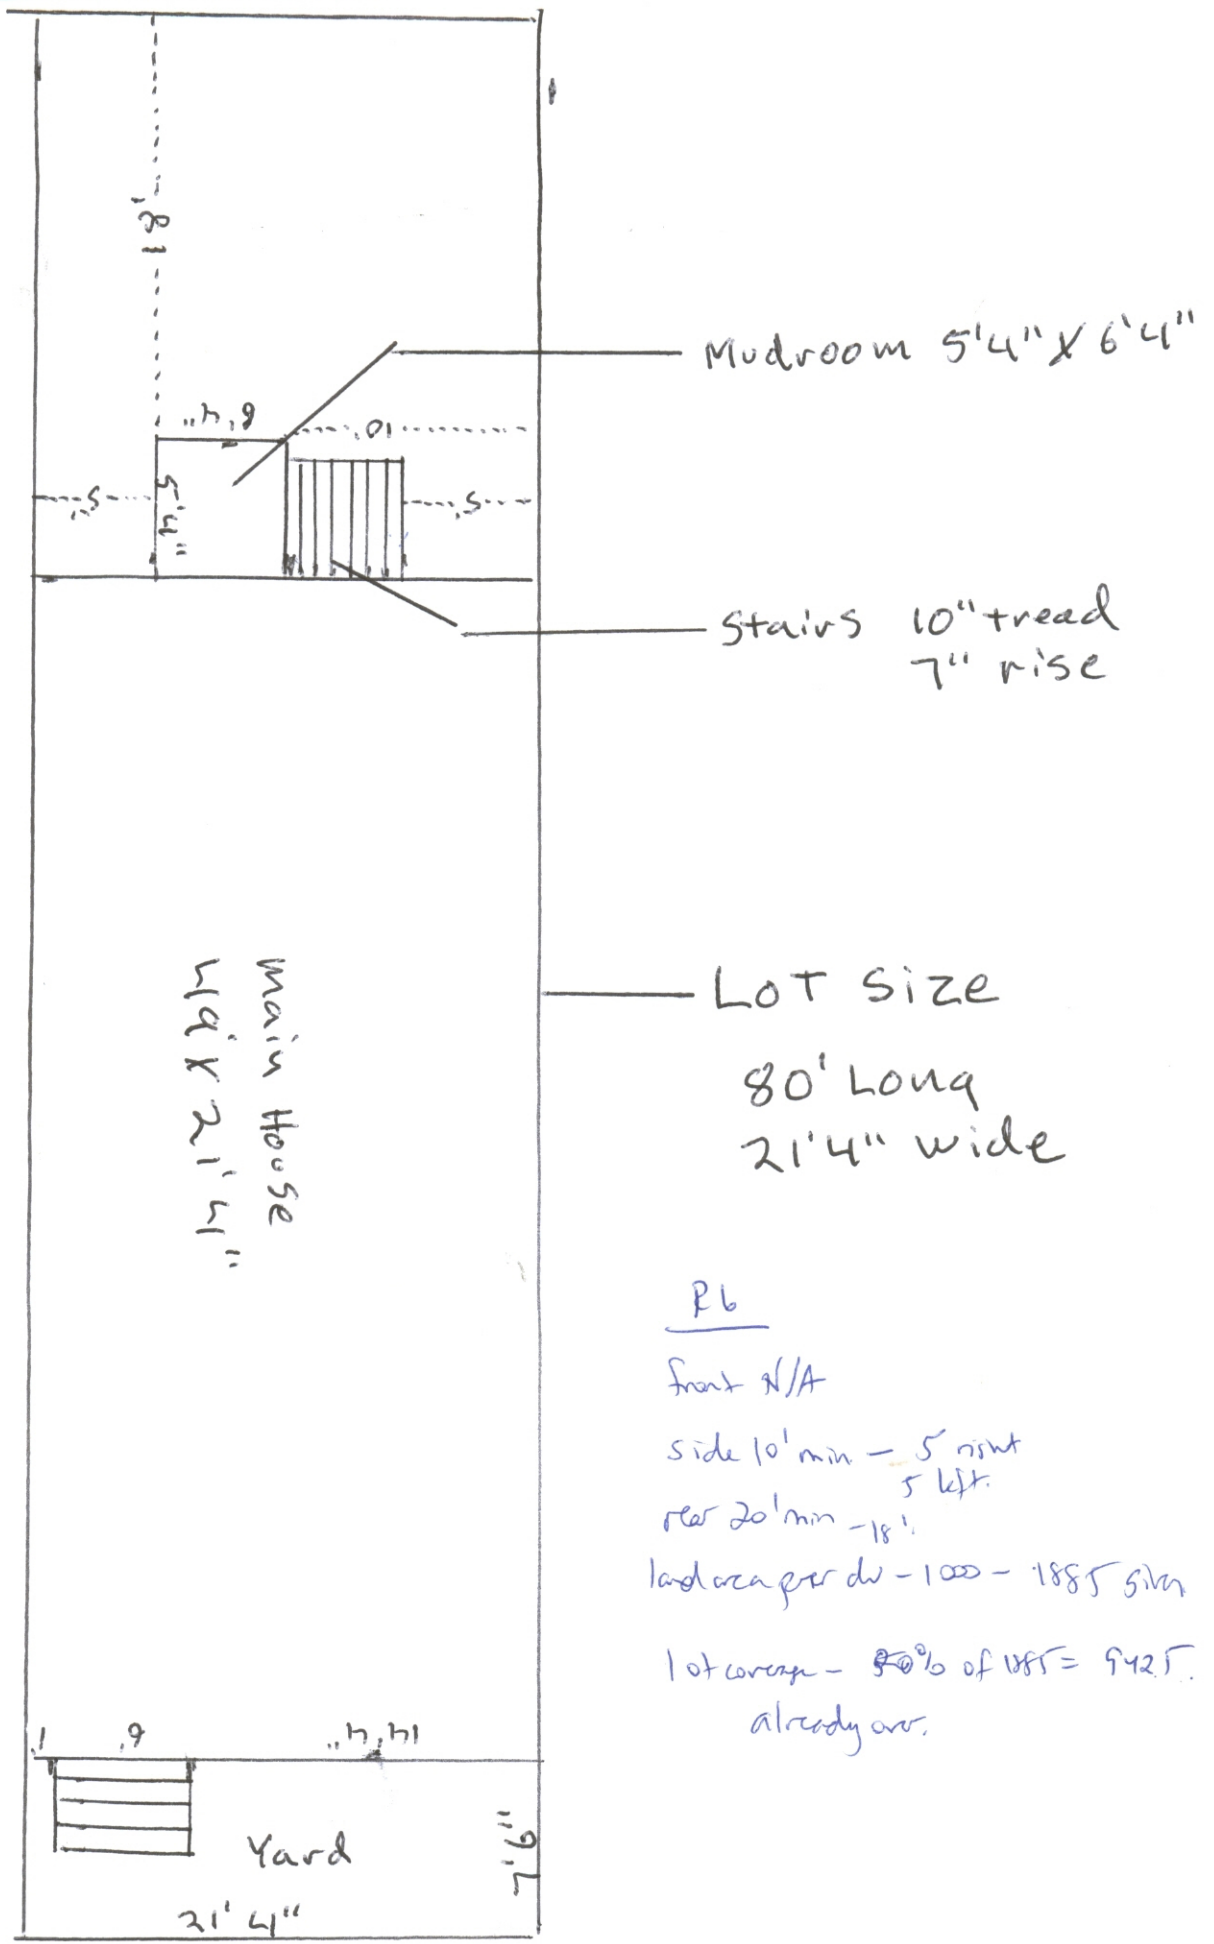 18'
Mudroom 5'4" X 6'4"
6'4"
10'
5'
5'4"
5'
Stairs 10" tread
7" rise
Main House
49' X 21'4"
LOT Size
80' Long
21'4" wide
R6
front N/A
side 10' min - 5 right
5 left.
rear 20' min - 18'
land area per du - 1000 - 1885 given
lot coverage - 50% of 1885 = 942.5
already over.
1'
6'
14'4"
Yard
7'6"
21'4"